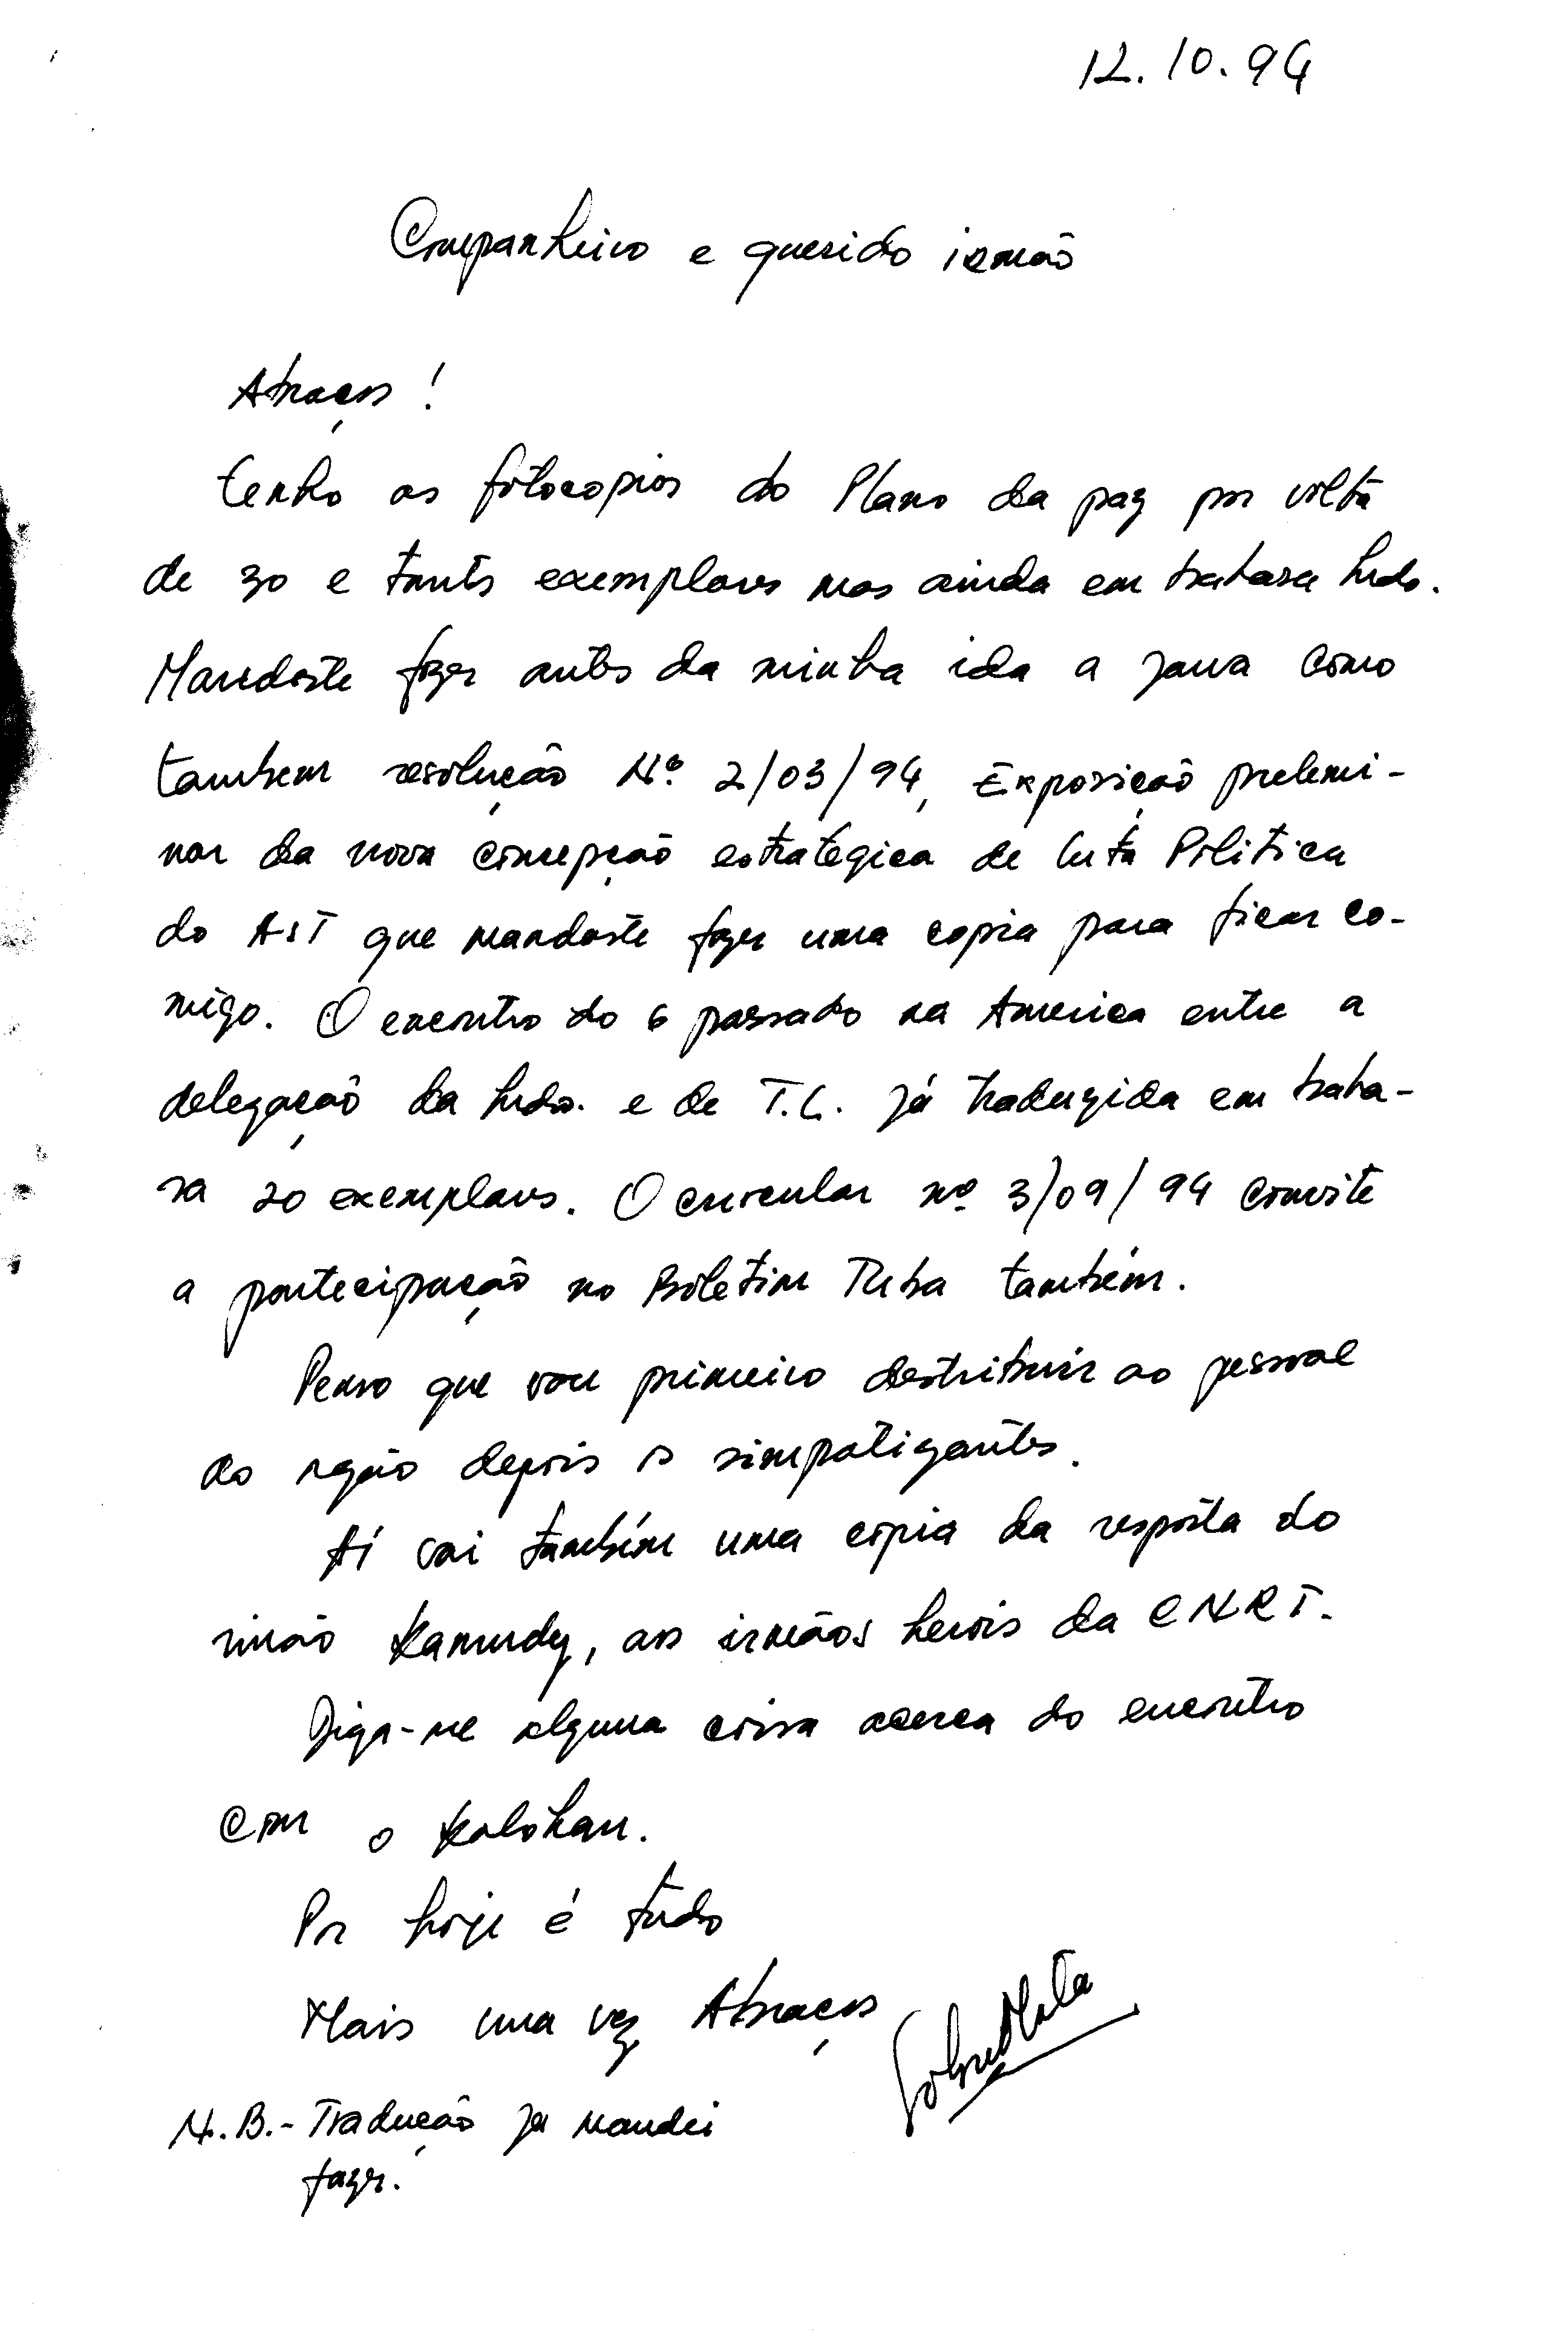 12.10.94
Companheiro e querido irmão
Abraços!
Tenho as fotocopias do Plano da paz por volta
de 30 e tants exemplares mas ainda em bahasa Indo.
Mandaste fazer antes da minha ida a Jawa como
tambem resolução Nº 2/03/94, Exposição prelemi-
nar da nova concepção estrategica de luta Politica
do AST que mandaste fazer uma copia para ficar co-
migo. O encontro do 6 passado na America entre a
delegação da Indo. e de T.L. já traduzida em baha-
sa 20 exemplares. O circular nº 3/09/94 convite
a partecipação no Boletim Tuba também.
Penso que vou primeiro destribuir ao pessoal
do orgão depois os simpatizantes.
Aí vai também uma copia da resposta do
irmão Kamudy, aos irmãos herois da CNRT.
Diga-me alguma coisa acerca do encontro
com o Kalohan.
Por hoje é tudo
Mais uma vez Abraços
N.B.- Tradução ja mandei
fazer.